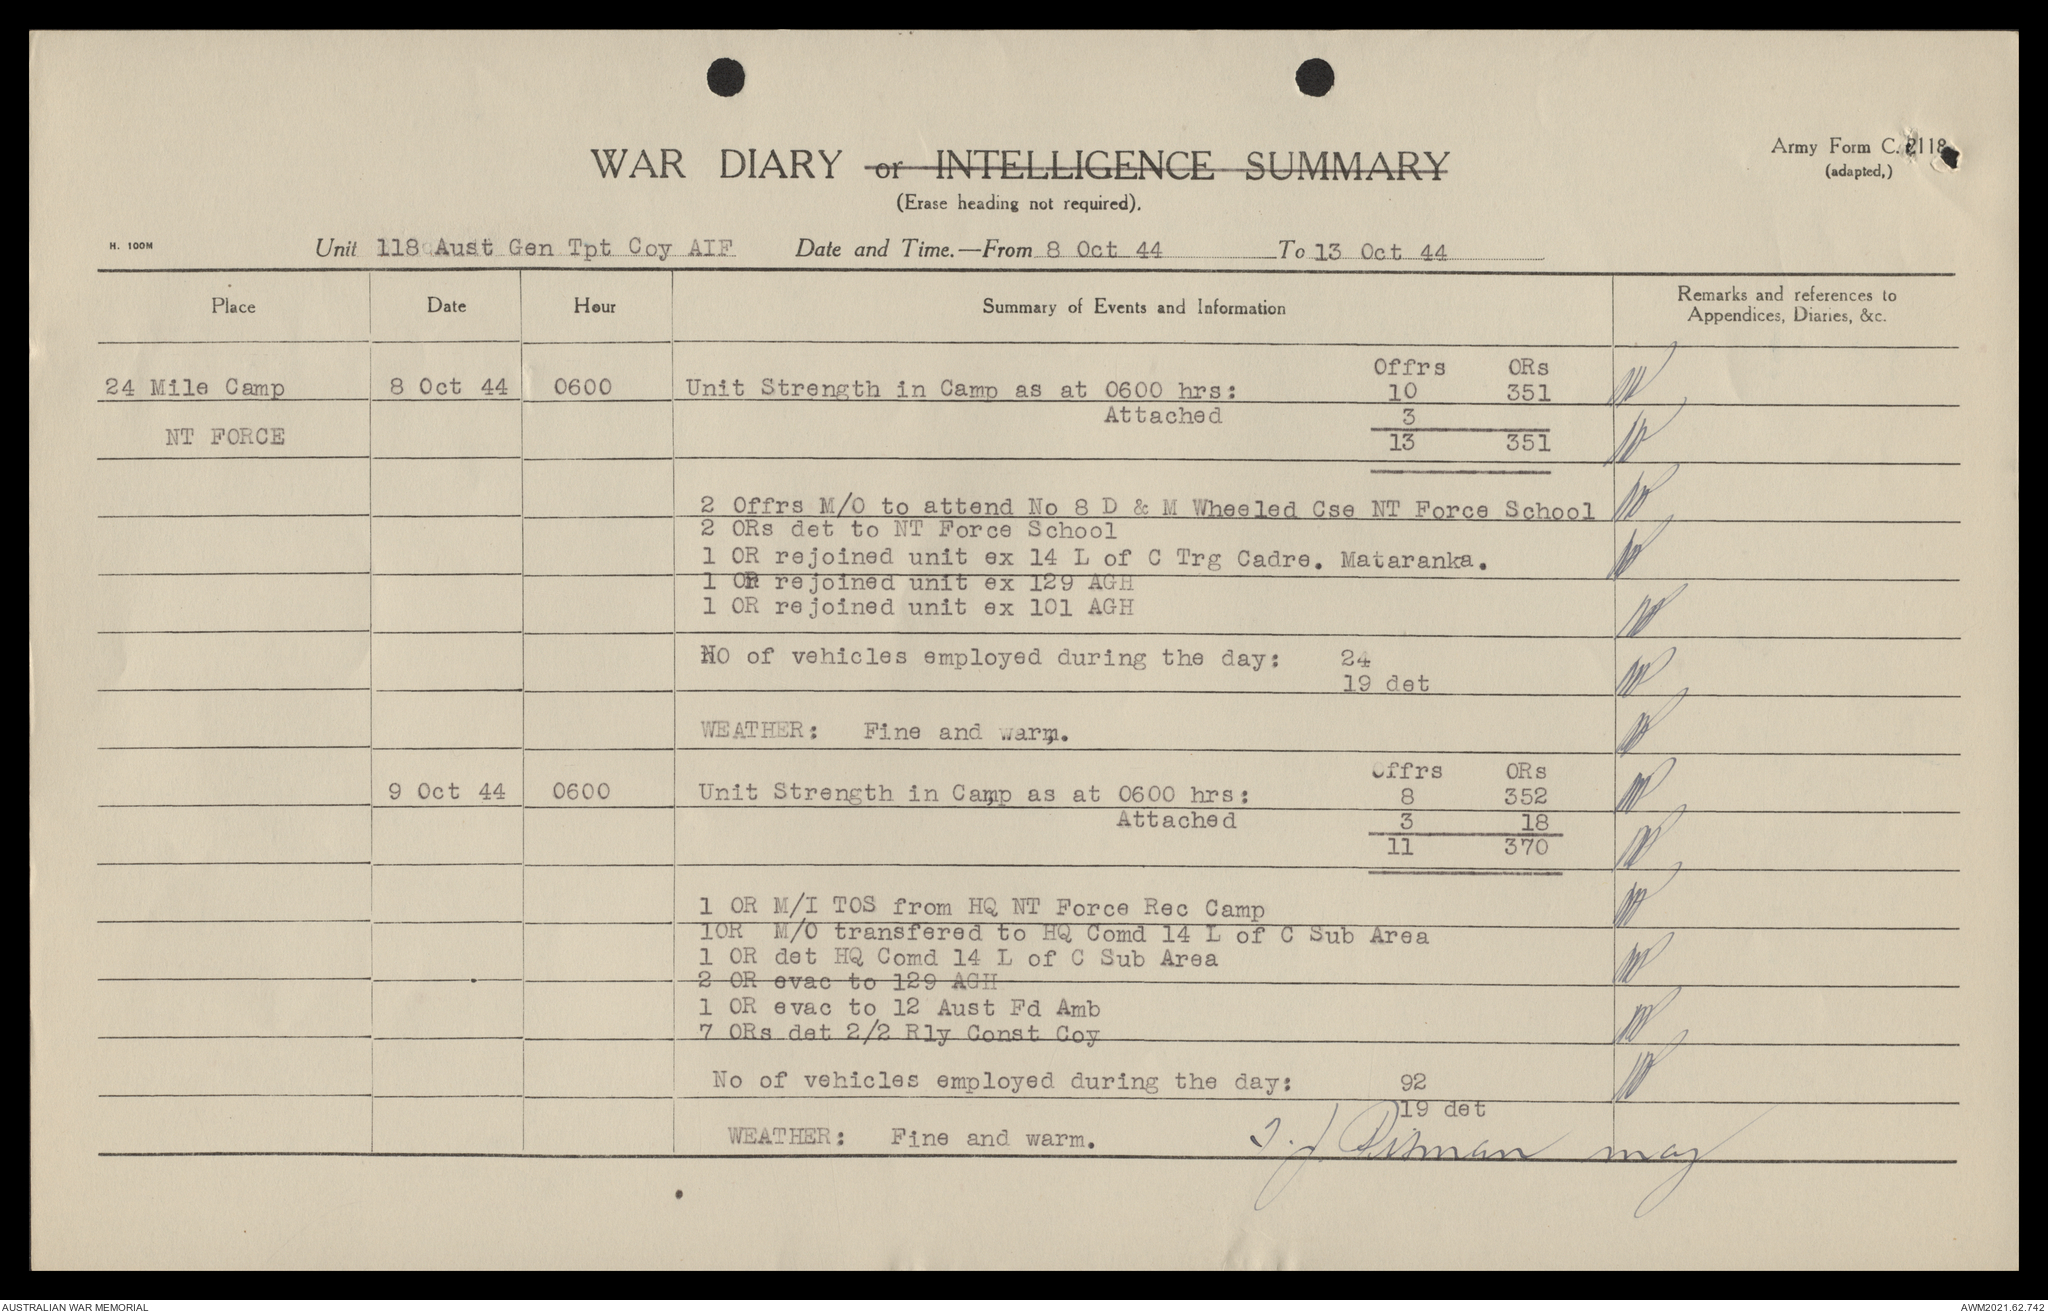 WAR DIARY or INTELLIGENCE SUMMARY
Army Form C. 2118
(adapted,)
(Erase heading not required).
H. 100M
Unit 118 Aust Gen Tpt Coy AIF Date and Time.—From 8 Oct 44 To 13 Oct 44
Place Date Hour Summary of Events and Information Remarks and references to
Appendices, Diaries, &c.
Offrs ORs
24 Mile Camp 8 Oct 44 0600 Unit Strength in Camp as at 0600 hrs: 10 351
Attached 3
NT FORCE 13 351
2 Offrs M/O to attend No 8 D & M Wheeled Cse NT Force School
2 ORs det to NT Force School
1 OR rejoined unit ex 14 L of C Trg Cadre. Mataranka.
1 OR rejoined unit ex 129 AGH
1 OR rejoined unit ex 101 AGH
NO of vehicles employed during the day: 24
19 det
WEATHER: Fine and warm.
Offrs ORs
9 Oct 44 0600 Unit Strength in Camp as at 0600 hrs: 8 352
Attached 3 18
11 370
1 OR M/I TOS from HQ NT Force Rec Camp
1OR M/O transfered to HQ Comd 14 L of C Sub Area
1 OR det HQ Comd 14 L of C Sub Area
2 OR evac to 129 AGH
1 OR evac to 12 Aust Fd Amb
7 ORs det 2/2 Rly Const Coy
No of vehicles employed during the day: 92
19 det
WEATHER: Fine and warm.
Pitman Maj
AUSTRALIAN WAR MEMORIAL
AWM2021.62.742